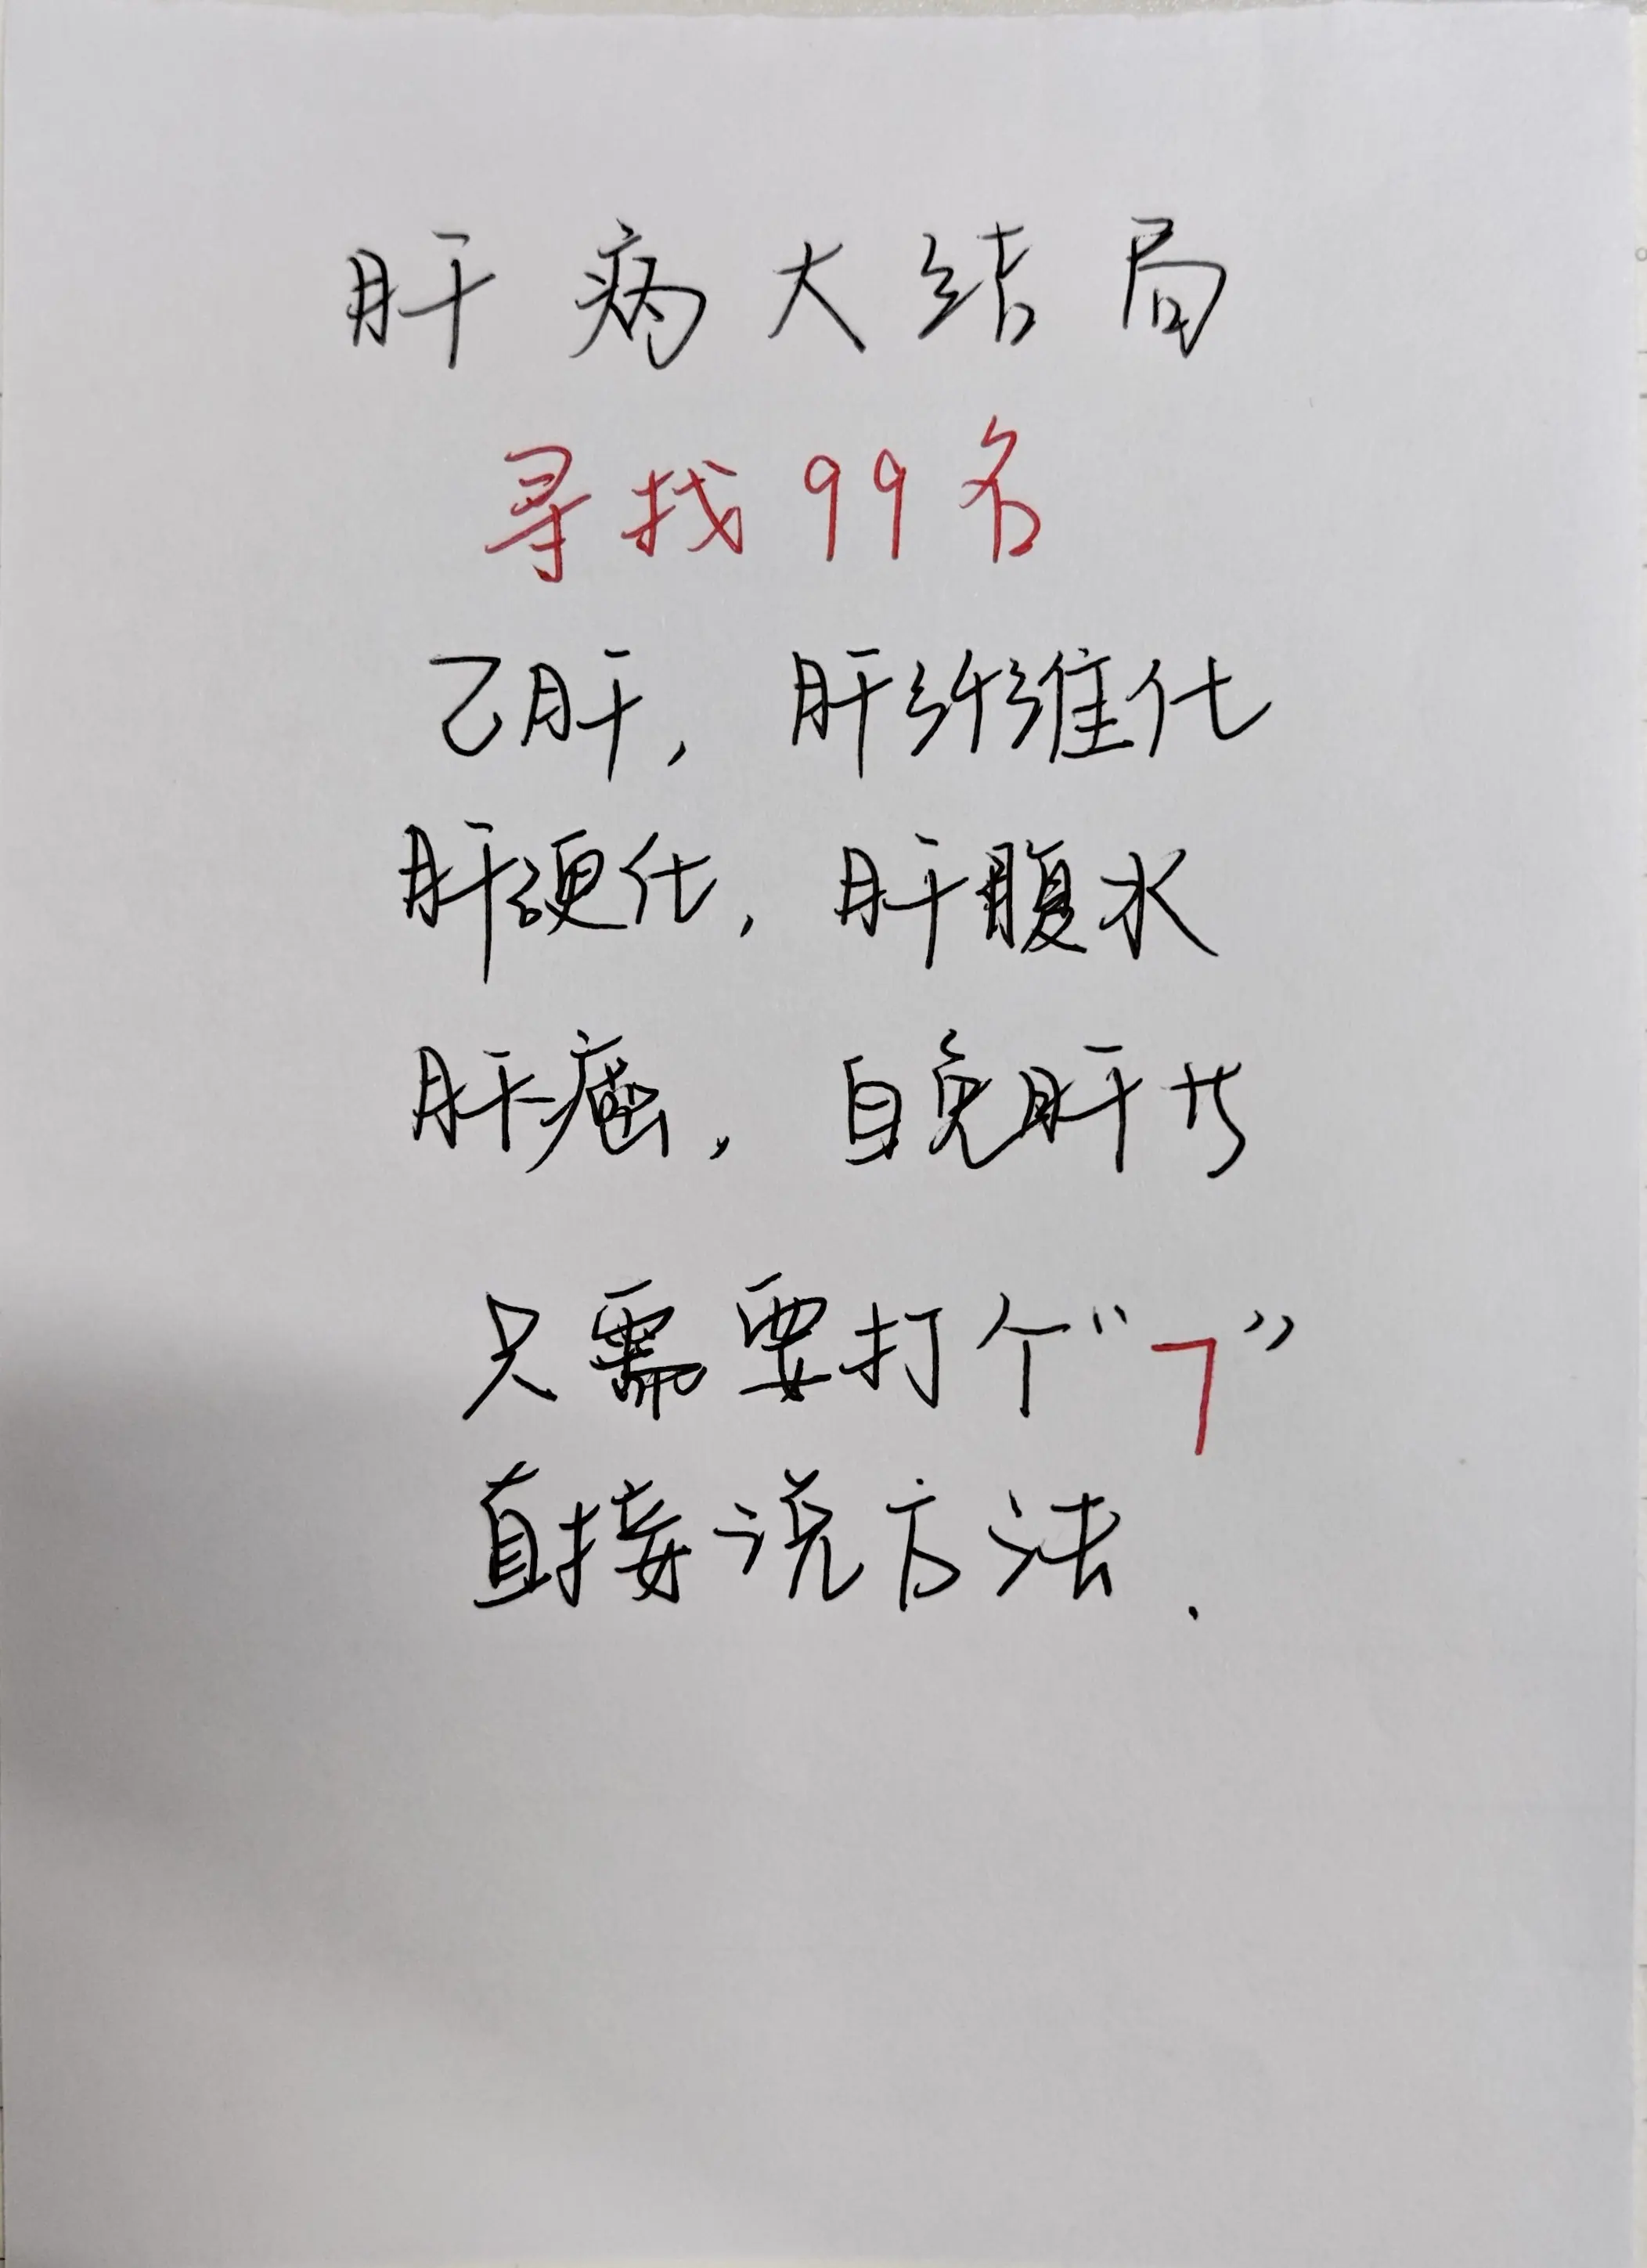 肝病大结局
寻找99名
乙肝,肝纤维化
肝硬化,肝腹水
肝癌,自免肝等
只需要打个“7”
直接说方法.